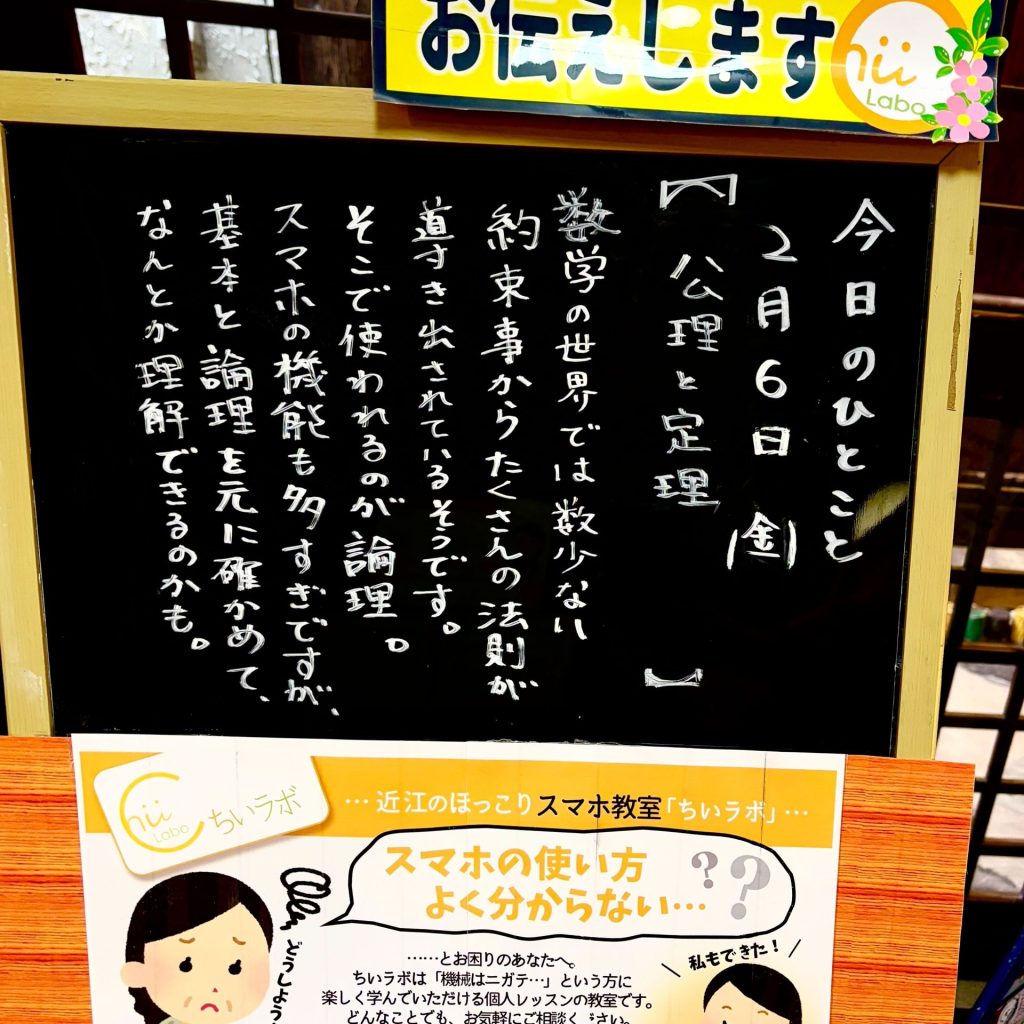 お伝えします
hii
Labo
今日のひとこと
2月6日(金)
【公理と定理】
数学の世界では数少ない
約束事からたくさんの法則が
導き出されているそうです。
そこで使われるのが論理。
スマホの機能も多すぎですが、
基本と論理を元に確かめて、
なんとか理解できるのかも。
Chii
Labo
ちいラボ
…近江のほっこりスマホ教室「ちいラボ」…
スマホの使い方
よく分からない…
???
どうしよう
……とお困りのあなたへ。
ちいラボは「機械はニガテ…」という方に
楽しく学んでいただける個人レッスンの教室です。
どんなことでも、お気軽にご相談ください。
私もできた!